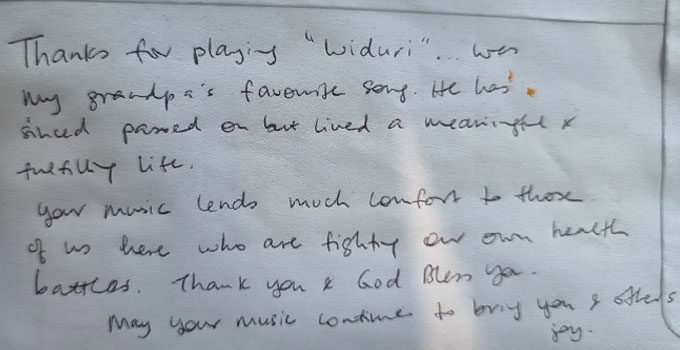 Thanks for playing "Widuri"... was
my grandpa's favourite song. He has
sinced passed on but lived a meaningful &
fulfilling life.
Your music lends much comfort to those
of us here who are fighting our own health
battles. Thank you & God Bless you.
May your music continue to bring you & others
joy.